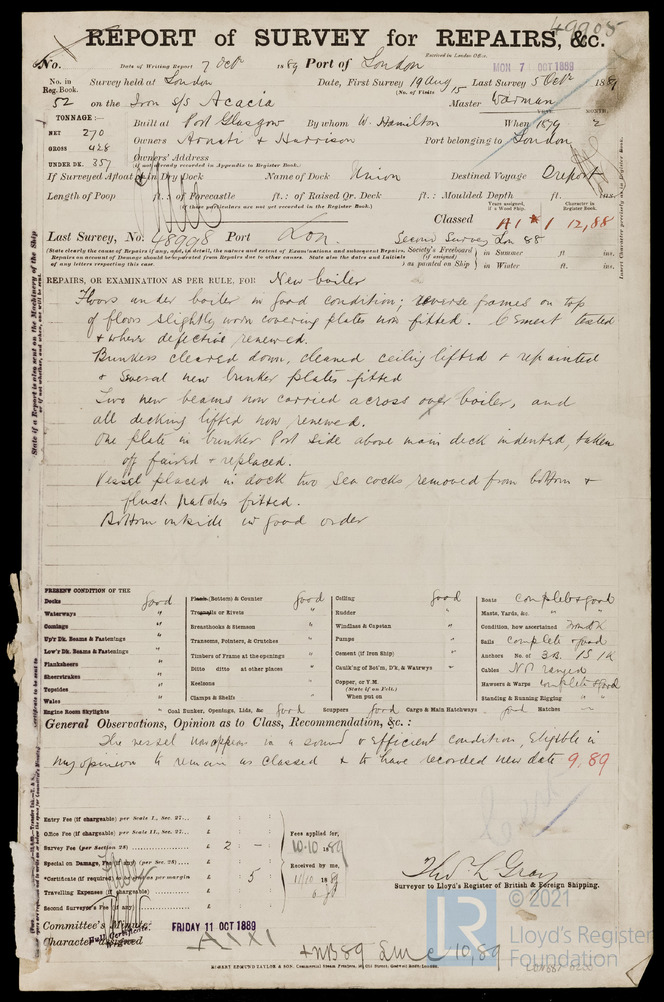 49905
REPORT of SURVEY for REPAIRS, &c.
Received in London Office.
No. Date of Writing Report 7 Octr 1889 Port of London MON 7 OCT 1889
No. in Reg. Book. Survey held at London Date, First Survey 19 Aug Last Survey 5 Octr 1889
(No. of Visits 15
52 on the Iron s/s Acacia Master
TONNAGE:—
YEAR. MONTH.
NET 270 Built at Port Glasgow By whom W. Hamilton When 1879 2
GROSS 428 Owners & Harrison Port belonging to London
UNDER DK. 357 Owners' Address
(if not already recorded in Appendix to Register Book.)
If Surveyed Afloat or in Dry Dock Name of Dock Union Destined Voyage
Length of Poop ft.: of Forecastle ft.: of Raised Qr. Deck ft.: Moulded Depth ft. ins.
(if these particulars are not yet recorded in the Register Book.)
Years assigned, if a Wood Ship. Character in Register Book.
Classed A1 * 1 12,88
Last Survey, No. 48998 Port Lon. Second Survey Lon 88
(State clearly the cause of Repairs if any, and, in detail, the nature and extent of Examinations and subsequent Repairs.
Repairs on account of Damage should be separated from Repairs due to other causes. State also the dates and Initials
of any letters respecting this case.
Society's Freeboard (if assigned) as painted on Ship
in Summer ft. ins.
in Winter ft. ins.
REPAIRS, OR EXAMINATION AS PER RULE, FOR New boiler
Floors under boiler in good condition; reverse frames on top
of floors slightly worn covering plates now fitted. Cement tested
& where defective renewed.
Bunkers cleared down, cleaned ceiling lifted & repainted
& Several new bunker plates fitted
Two new beams now carried across over boiler, and
all decking lifted now renewed.
One plate in bunker Port side above main deck indented, taken
off faired & replaced.
Vessel placed in dock two Sea cocks removed from bottom &
flush patches fitted.
Bottom outside in good order
PRESENT CONDITION OF THE
Decks good
Waterways "
Comings "
Up'r Dk. Beams & Fastenings "
Low'r Dk. Beams & Fastenings "
Planksheers "
Sheerstrakes "
Topsides "
Wales "
Engine Room Skylights "
Plank (Bottom) & Counter good
Treenails or Rivets "
Breasthooks & Stemson "
Transoms, Pointers, & Crutches "
Timbers of Frame at the openings "
Ditto ditto at other places "
Keelsons "
Clamps & Shelfs "
Coal Bunker, Openings, Lids, &c. good
Ceiling good
Rudder "
Windlass & Capstan "
Pumps "
Cement (if Iron Ship) "
Caulk'ng of Bot'm, D'k, & Watrwys "
Copper, or Y.M.
(State if on Felt.)
When put on
Scuppers good Cargo & Main Hatchways good
Boats complete & good
Masts, Yards, &c. " "
Condition, how ascertained from dk
Sails complete & good
Anchors No. of 3 B. 1 S. 1 K
Cables Not ranged
Hawsers & Warps complete & good
Standing & Running Rigging " "
Hatches "
General Observations, Opinion as to Class, Recommendation, &c.:
The vessel now appears in a sound & efficient condition, Eligible in
my opinion to remain as classed & to have recorded new date 9,89
Entry Fee (if chargeable) per Scale I., Sec. 27... £ : :
Office Fee (if chargeable) per Scale II., Sec. 27... £ : :
Survey Fee (per Section 28) ... £ 2 : - :
Special on Damage, Fee (if any) (per Sec. 28) ... £ : :
*Certificate (if required) as per margin £ : 5 :
Travelling Expenses (if chargeable) £ : :
Second Surveyor's Fee (if any) £ : :
Fees applied for,
10.10 1889
Received by me,
11/10 1889
Thos. L. Gray
Surveyor to Lloyd's Register of British & Foreign Shipping.
Committee's Minute FRIDAY 11 OCT 1889
Character assigned A1*1
+NB89 LMC 10,89
ROBERT EDMUND TAYLOR & SON, Commercial Steam Printers, Old Street, Goswell Road, London.
© 2021
LR
Lloyd's Register
Foundation